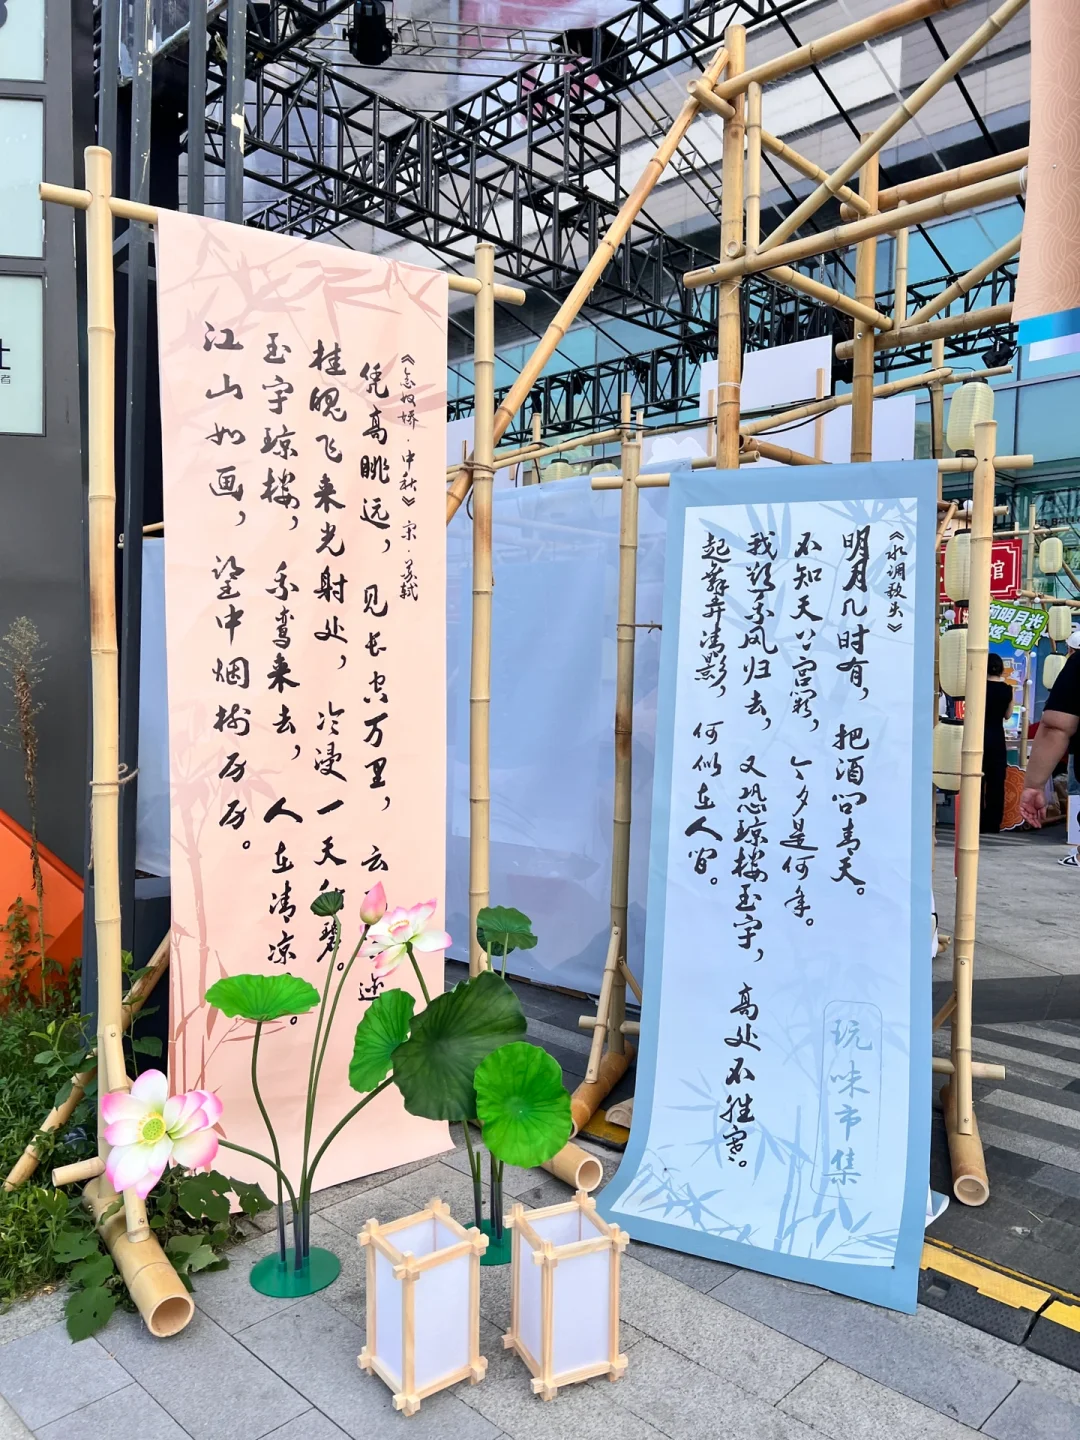 《念奴娇·中秋》宋·苏轼
凭高眺远，见长空万里，云迹
桂魄飞来光射处，冷浸一天秋碧。
玉宇琼楼，乘鸾来去，人在清凉。
江山如画，望中烟树历历。
《水调歌头》
明月几时有，把酒问青天。
不知天上宫阙，今夕是何年。
我欲乘风归去，又恐琼楼玉宇，高处不胜寒。
起舞弄清影，何似在人间。
玩味市集
馆
前明月光